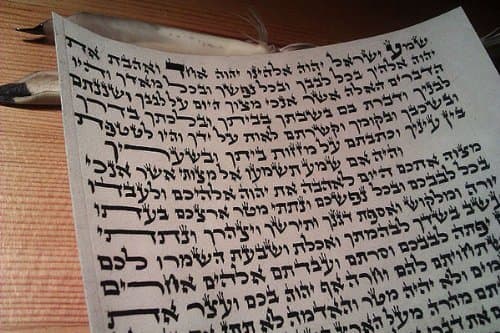 שמע ישראל יהוה אלהינו יהוה אחד ואהבת את
יהוה אלהיך בכל לבבך ובכל נפשך ובכל מאדך והיו
הדברים האלה אשר אנכי מצוך היום על לבבך ושננתם
לבניך ודברת בם בשבתך בביתך ובלכתך בדרך
ובשכבך ובקומך וקשרתם לאות על ידך והיו לטטפת
בין עיניך וכתבתם על מזזות ביתך ובשעריך
והיה אם שמע תשמעו אל מצותי אשר אנכי
מצוה אתכם היום לאהבה את יהוה אלהיכם ולעבדו
בכל לבבכם ובכל נפשכם ונתתי מטר ארצכם בעתו
יורה ומלקוש ואספת דגנך ותירשך ויצהרך ונתתי
עשב בשדך לבהמתך ואכלת ושבעת השמרו לכם
יפתה לבבכם וסרתם ועבדתם אלהים אחרים
להם וחרה אף יהוה בכם ועצר את
ולא יהיה מטר והאדמה לא תתן
מהרה מעל